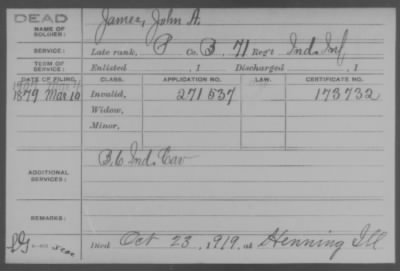 DEAD
NAME OF SOLDIER: James, John A.
SERVICE: Late rank, P Co. B, 71 Reg't Ind. Inf
TERM OF SERVICE: Enlisted , 1 Discharged , 1
DATE OF FILING. CLASS. APPLICATION NO. LAW. CERTIFICATE NO.
1879 Mar 10 Invalid, 271537 173732
Widow,
Minor,
ADDITIONAL SERVICES: B. 6 Ind. Cav
REMARKS:
Died Oct 23, 1919, at Henning Ill